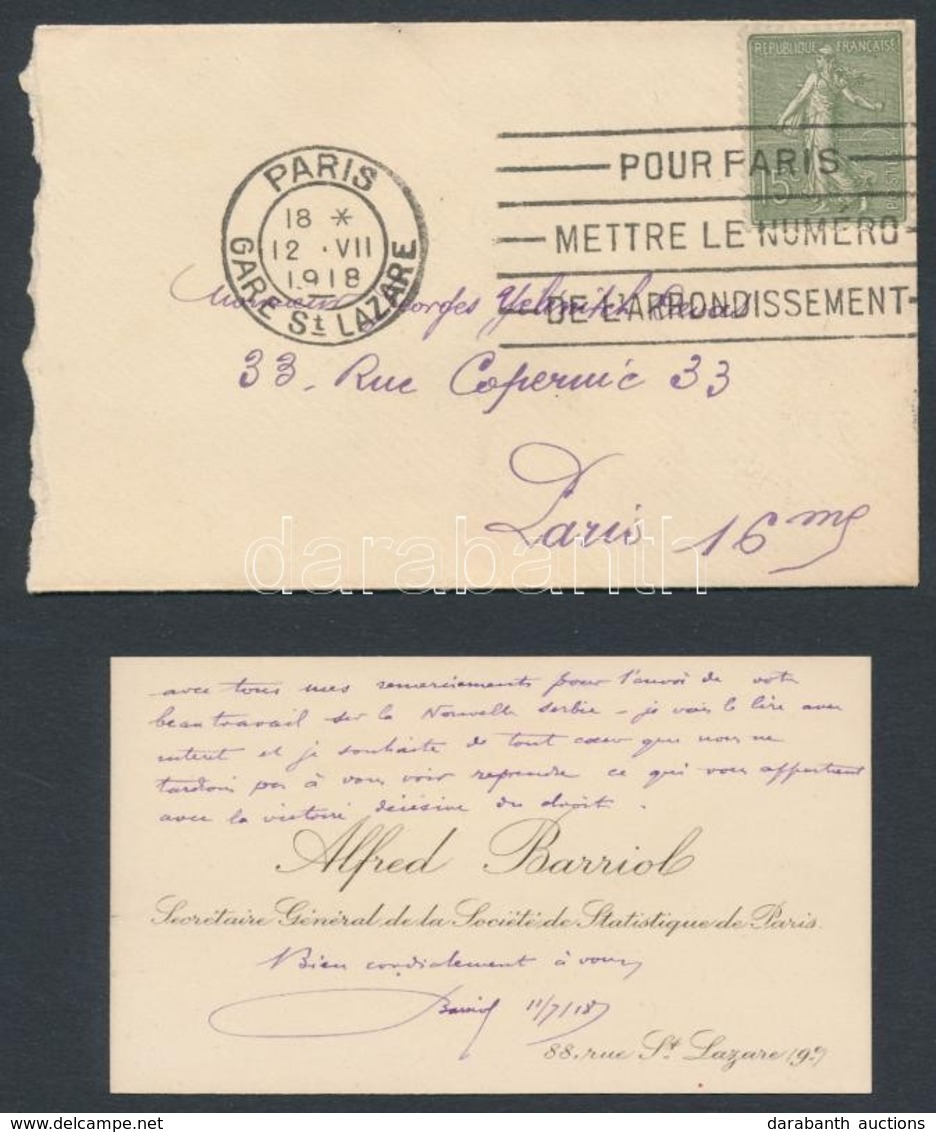 REPUBLIQUE FRANÇAISE
15c
POSTES
POUR PARIS
METTRE LE NUMÉRO
DE L'ARRONDISSEMENT
PARIS
18 *
12 · VII
1918
GARE St LAZARE
Monsieur Georges Yelenitch
33. Rue Copernic 33
Paris 16me
darabanth
avec tous mes remerciements pour l'envoi de votre
beau travail sur la Nouvelle Serbie – je vais le lire avec
intérêt et je souhaite de tout cœur que nous ne
tardions pas à vous voir reprendre ce qui vous appartient
avec la victoire décisive du droit.
Alfred Barriol
Secrétaire Général de la Société de Statistique de Paris.
Bien cordialement à vous,
Barriol 11/7/18
88, rue St. Lazare (9e)
darabanth auctions